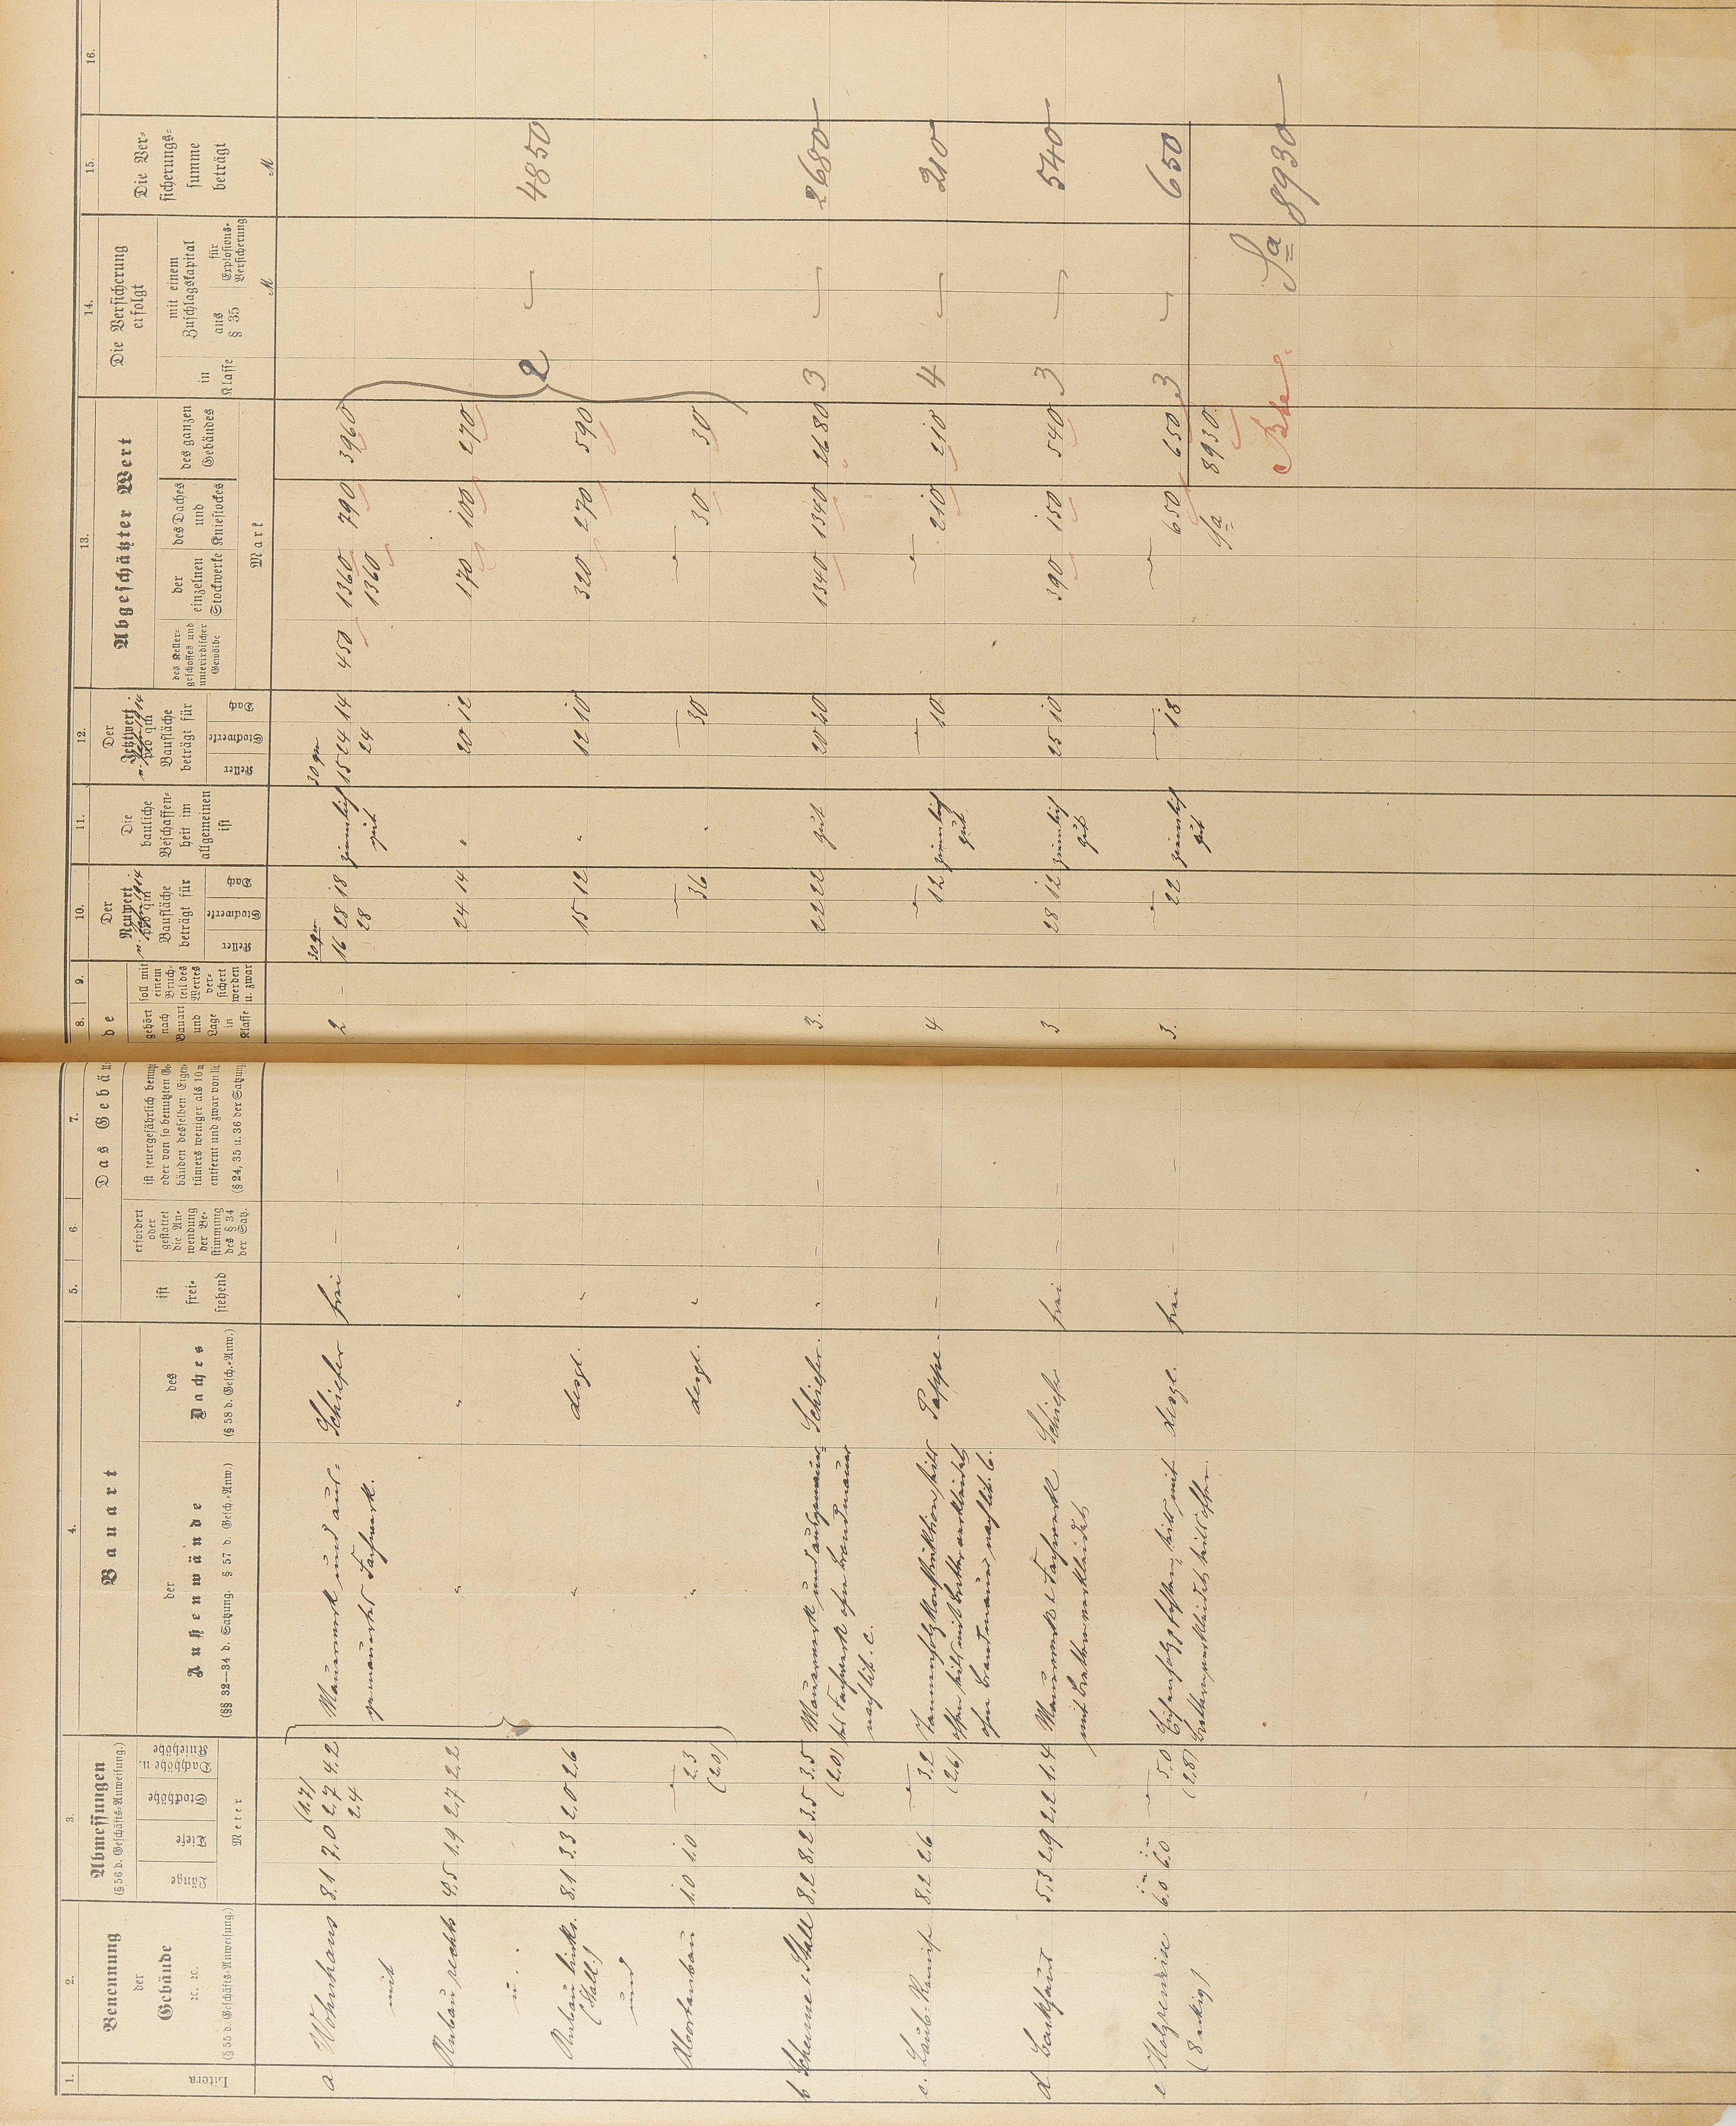 1.
Litera
2.
Benennung
der
Gebäude
ꝛc. ꝛc.
(§ 55 d. Geschäfts-Anweisung.)
3.
Abmessungen
(§ 56 d. Geschäfts-Anweisung.)
Länge
Tiefe
Stockhöhe
Dachhöhe u. Kniehöhe
Meter
4.
Bauart
der
Außenwände
(§§ 32—34 d. Satzung. § 57 d. Gesch.-Anw.)
des
Daches
(§ 58 d. Gesch.-Anw.)
Das Gebäu
5.
ist
frei-
stehend
6.
erfordert
oder
gestattet
die An-
wendung
der Be-
stimmung
des § 34
der Satz.
7.
ist feuergefährlich benutz
oder von so benutzten Ge
bäuden desselben Eigen
tümers weniger als 10 m
entfernt und zwar von lit
(§ 24, 35 u. 36 der Satzung
de
8.
gehört
nach
Bauart
und
Lage
in
Klasse
9.
soll mit
einem
Bruch-
teil des
Wertes
ver-
sichert
werden
u. zwar
10.
Der
Neuwert
v. Jahr 1914
pro qm
Baufläche
beträgt für
Keller
Stockwerke
Dach
11.
Die
bauliche
Beschaffen-
heit im
allgemeinen
ist
12.
Der
Jetztwert
v. Jahr 1914
pro qm
Baufläche
beträgt für
Keller
Stockwerke
Dach
13.
Abgeschätzter Wert
des Keller-
geschosses und
unterirdischer
Gewölbe
der
einzelnen
Stockwerke
des Daches
und
Kniestockes
des ganzen
Gebäudes
Mark
14.
Die Versicherung
erfolgt
in
Klasse
mit einem
Zuschlagskapital
aus
§ 35
für
Explosions-
Versicherung
M
15.
Die Ver-
sicherungs-
summe
beträgt
M
16.
(1.7) 30 qm 30 qm
a Wohnhaus 8,1 7,0 2,7 4,2 Mauerwerk und aus- Schiefer frei – – 2 – 16 28 18 ziemlich 15 24 14 450 1360 790 3960
mit 2.4 gemauertes Fachwerk. 28 gut 24 1360
Anbau rechts 4,5 1,9 2,7 2,2 " " " 24 14 " 20 12 170 100 270
u. 2 — 4850
Anbau links. 8,1 3,3 2,0 2,6 " desgl. " 15 12 " 12 10 320 270 590
(Stall.)
und
Abortanbau 1.0 1.0 — 2.3 " desgl. " — 36 " — 30 — 30 30
(2.0)
b Scheune & Stall 8,2 8,2 3.5 3.5 Mauerwerk und ausgemauer- Schiefer. " – – 3. 22 22 gut 20 20 1340 1340 2680 3 — 2680
(2.0) tes Fachwerk ohne Brandmauer
nach lit. c.
c. Laub-Remise 8,2 2,6 — 3,2 Tannenholzkonstruktion, teils Pappe. – – 4 — 12 ziemlich — 10 — 210 210 4 — 210
(2.6) offen teils mit Bretter verkleidet, gut
ohne Brandmauer nach lit. b.
d Backhaus 5,3 2,9 2,2 1.4 Mauerwerk & Fachwerk Schiefer frei – – 3 28 12 ziemlich 25 10 390 150 540 3 — 540
mit Brettern verkleidet gut
e Holzremise 6.0 6.0 — 5.0 Eichenholzpfosten, teils mit desgl. frei – – 3. — 22 ziemlich — 18 — 650 650 3 — 650
(8 eckig) (2,8) Bretter verkleidet, teils offen. gut
Sa 8930.
Sa 8930